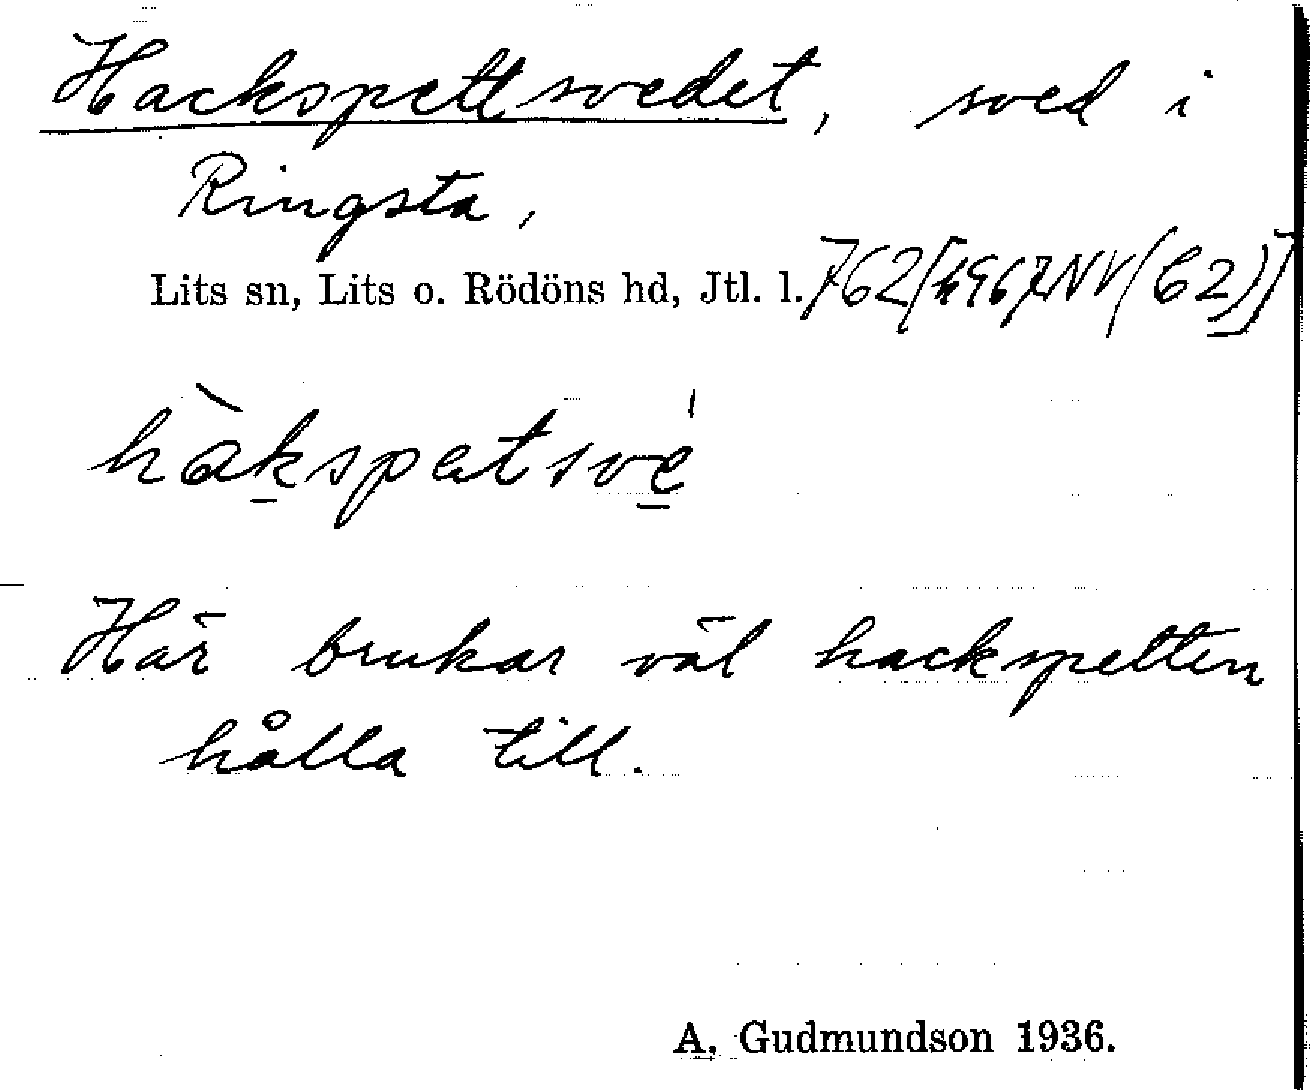 Hackspettsvedet, sved i
Ringsta,
Lits sn, Lits o. Rödöns hd, Jtl. l.
Här brukar väl hackspetten
hålla till.
A. Gudmundson 1936.